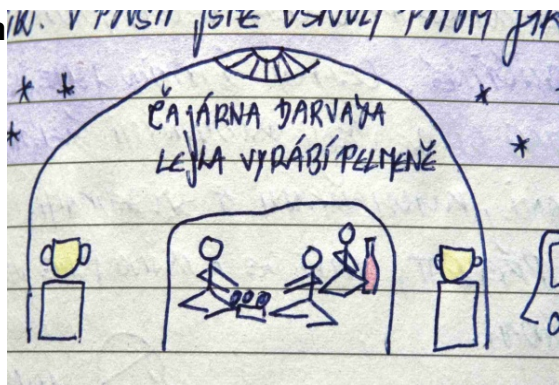 V POUŠTI JSTE USNULY POTOM
ČAJÁRNA DARVAJA
LEJLA VYRÁBÍ PELMENĚ